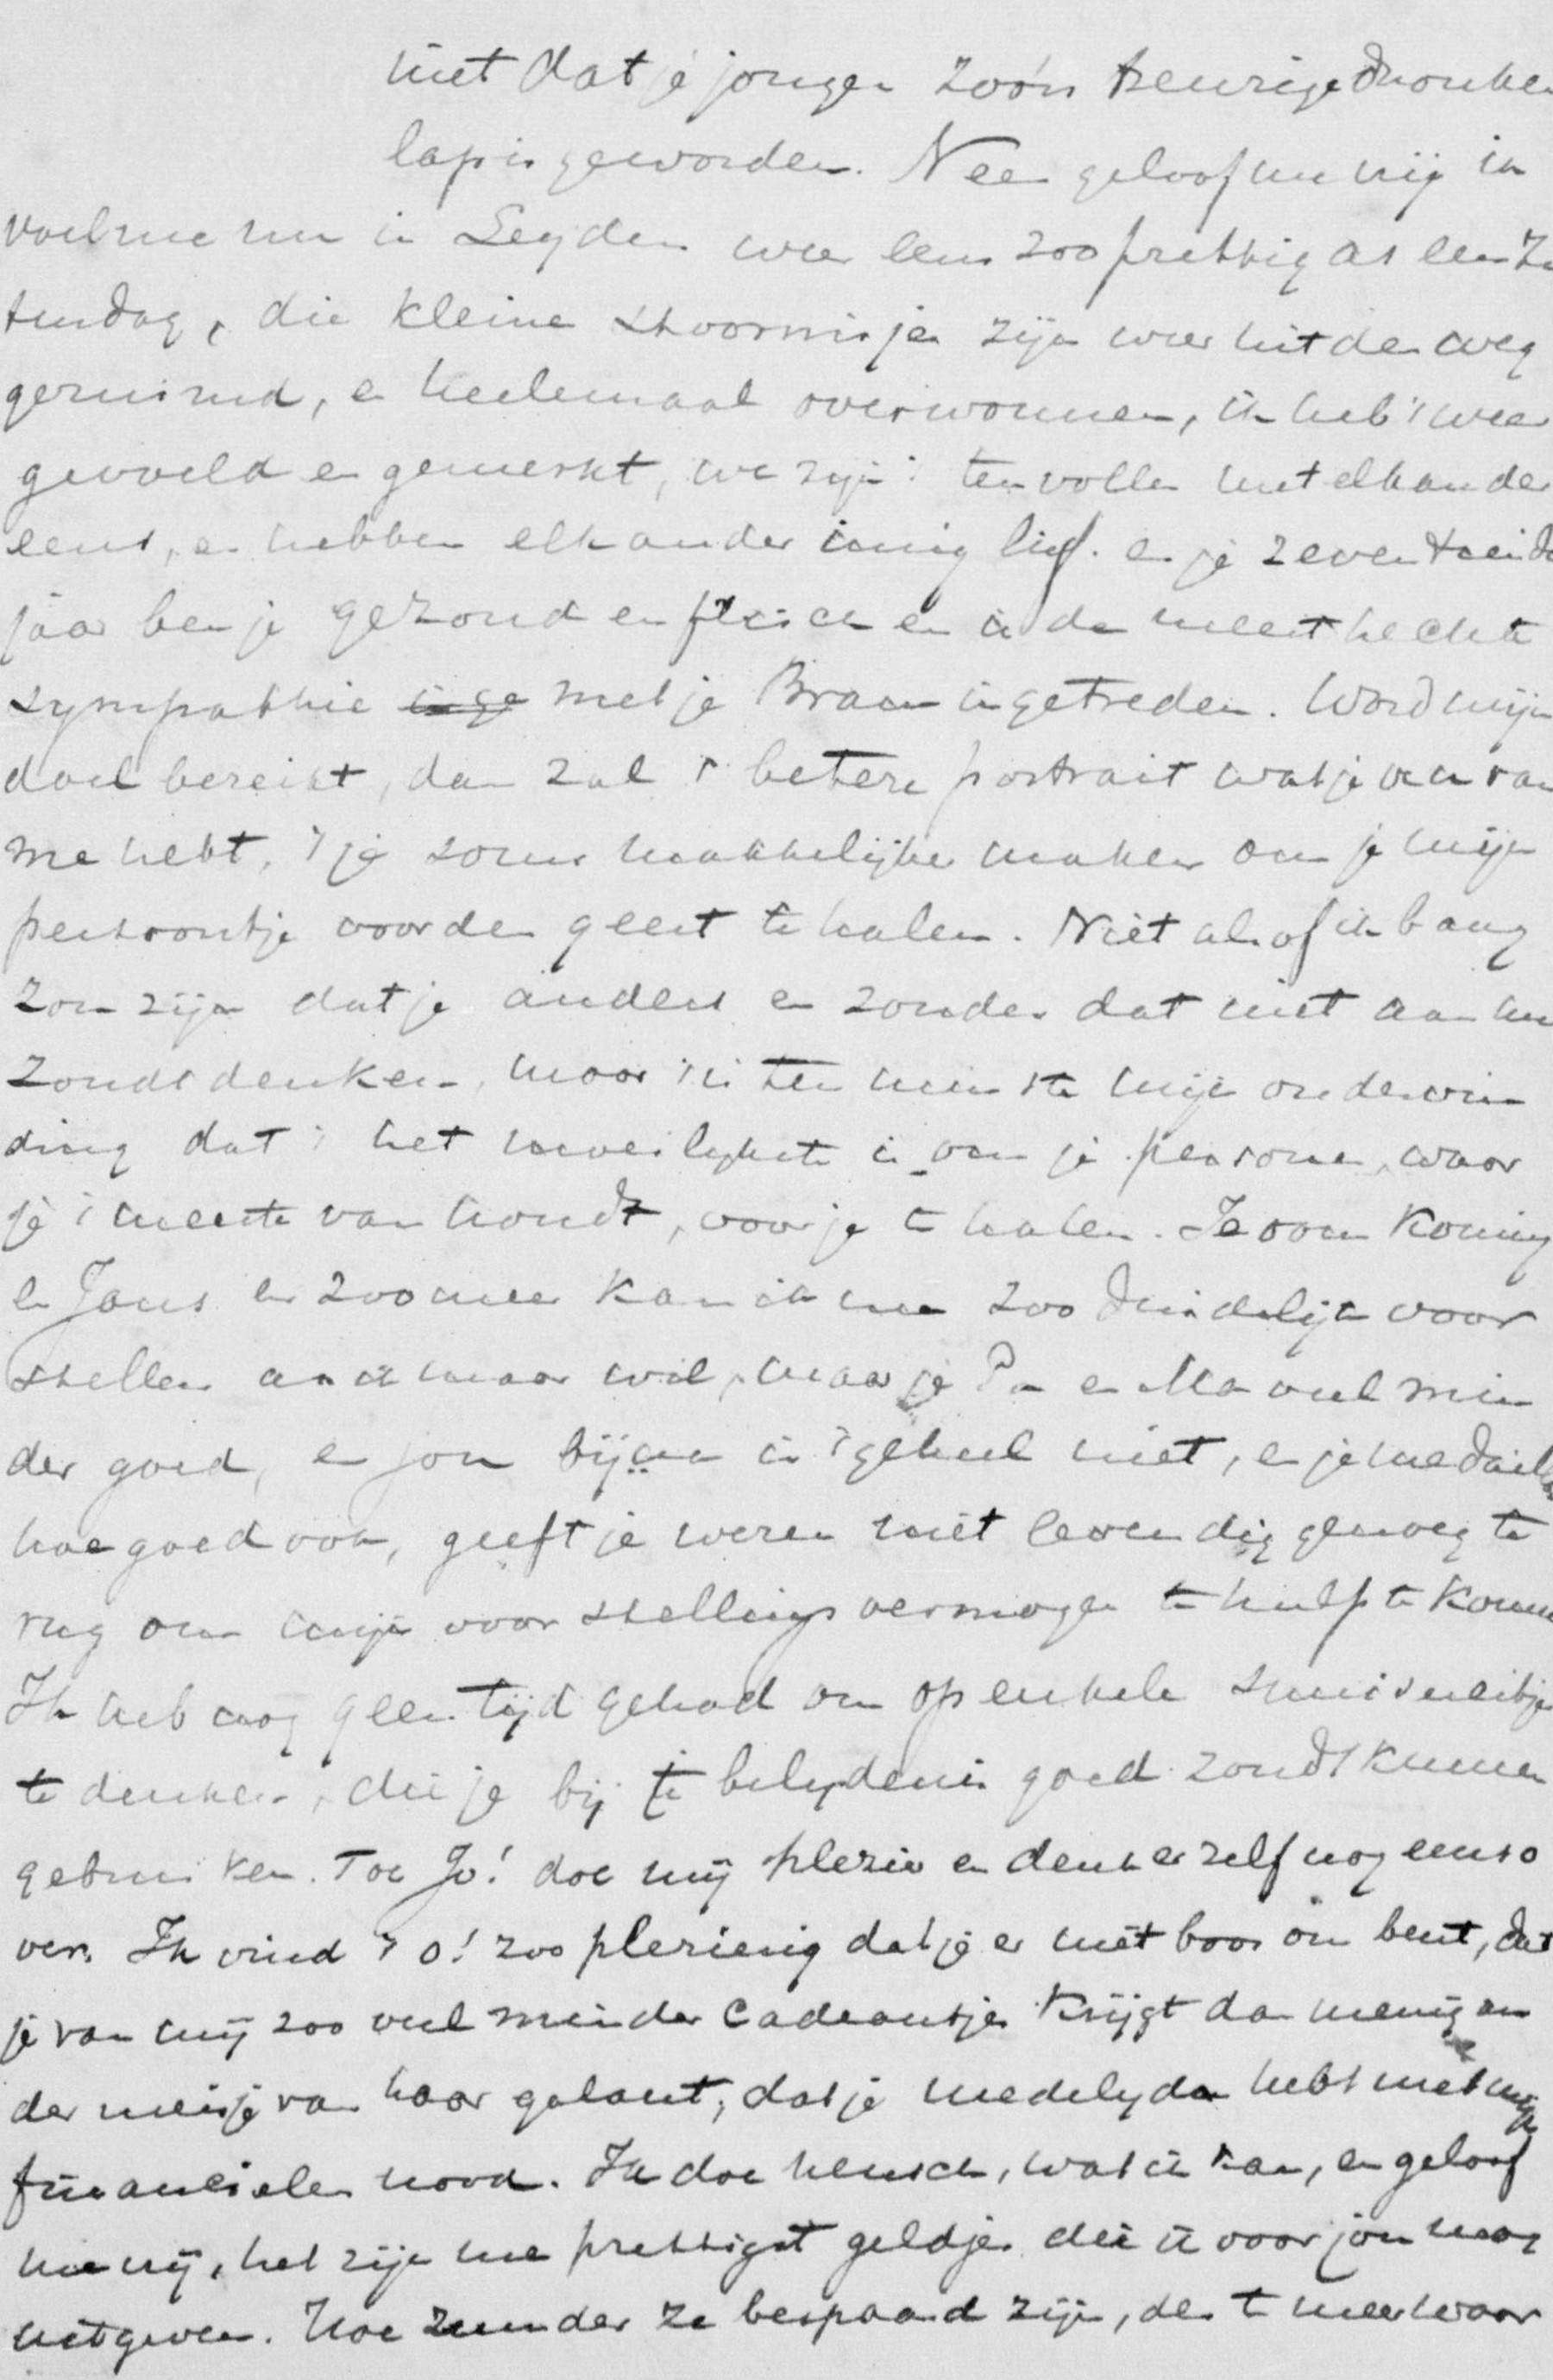 niet dat je jongen zoo'n treurige dronken
lap is geworden. Nee geloof me vrij ik
voel me nu in Leyden weer eens zoo prettig as een Za
terdag, die kleine stoornisjes zijn weer uit den weg
geruimd, en heelemaal overwonnen, ik heb 't weer
gevoeld en gemerkt, we zijn 't ten volle met elkander
eens, en hebben elkander innig lief. en je zeventiende
jaar ben je gezond en frisch en in de meest hechte
sympathie inge met je Bram ingetreden. Word mijn
doel bereikt, dan zal 't betere portrait wat je van
me hebt, 't je soms makkelijker maken om je mijn
persoontje voor den geest te halen. Niet alsof ik bang
zou zijn dat je anders en zonder dat niet aan me
zoudt denken, maar 't is ten minste mijn ondervin
ding dat 't het moeilykste is om je personen, waar
je 't meeste van houdt, voor je te halen. Je oom Koning
en Jans en zoo meer kan ik me zoo duidelijk voor
stellen as ik maar wil, maar je Pa en Ma veel min
der goed, en jou bijna in 't geheel niet, en je medaillon
hoe goed ook, geeft je wezen niet levendig genoeg te
rug om mijn voorstellings vermogen te hulp te komen
Ik heb nog geen tijd gehad om op enkele snuisterijtjes
te denken, die je bij je belydenis goed zoudt kunnen
gebruiken. Toe Jo! doe mij plezier en denk er zelf nog eens o
ver. Ik vind 't o! zoo plezierig dat je er niet boos om bent, dat
je van mij zoo veel minder cadeautjes krijgt dan menig an
der meisje van haar galant, dat je medelyden hebt met mijn
financieelen nood. Ik doe heusch, wat ik kan, en geloof
me vrij, het zijn me prettigst geldjes die ik voor jou mag
uitgeven. Hoe zuinder ze bespaard zijn, des te meer waar